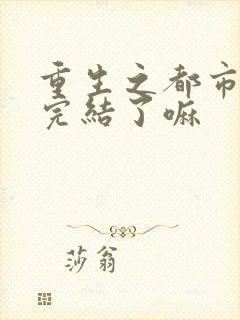 重生之都市
完結了嘛
莎翁